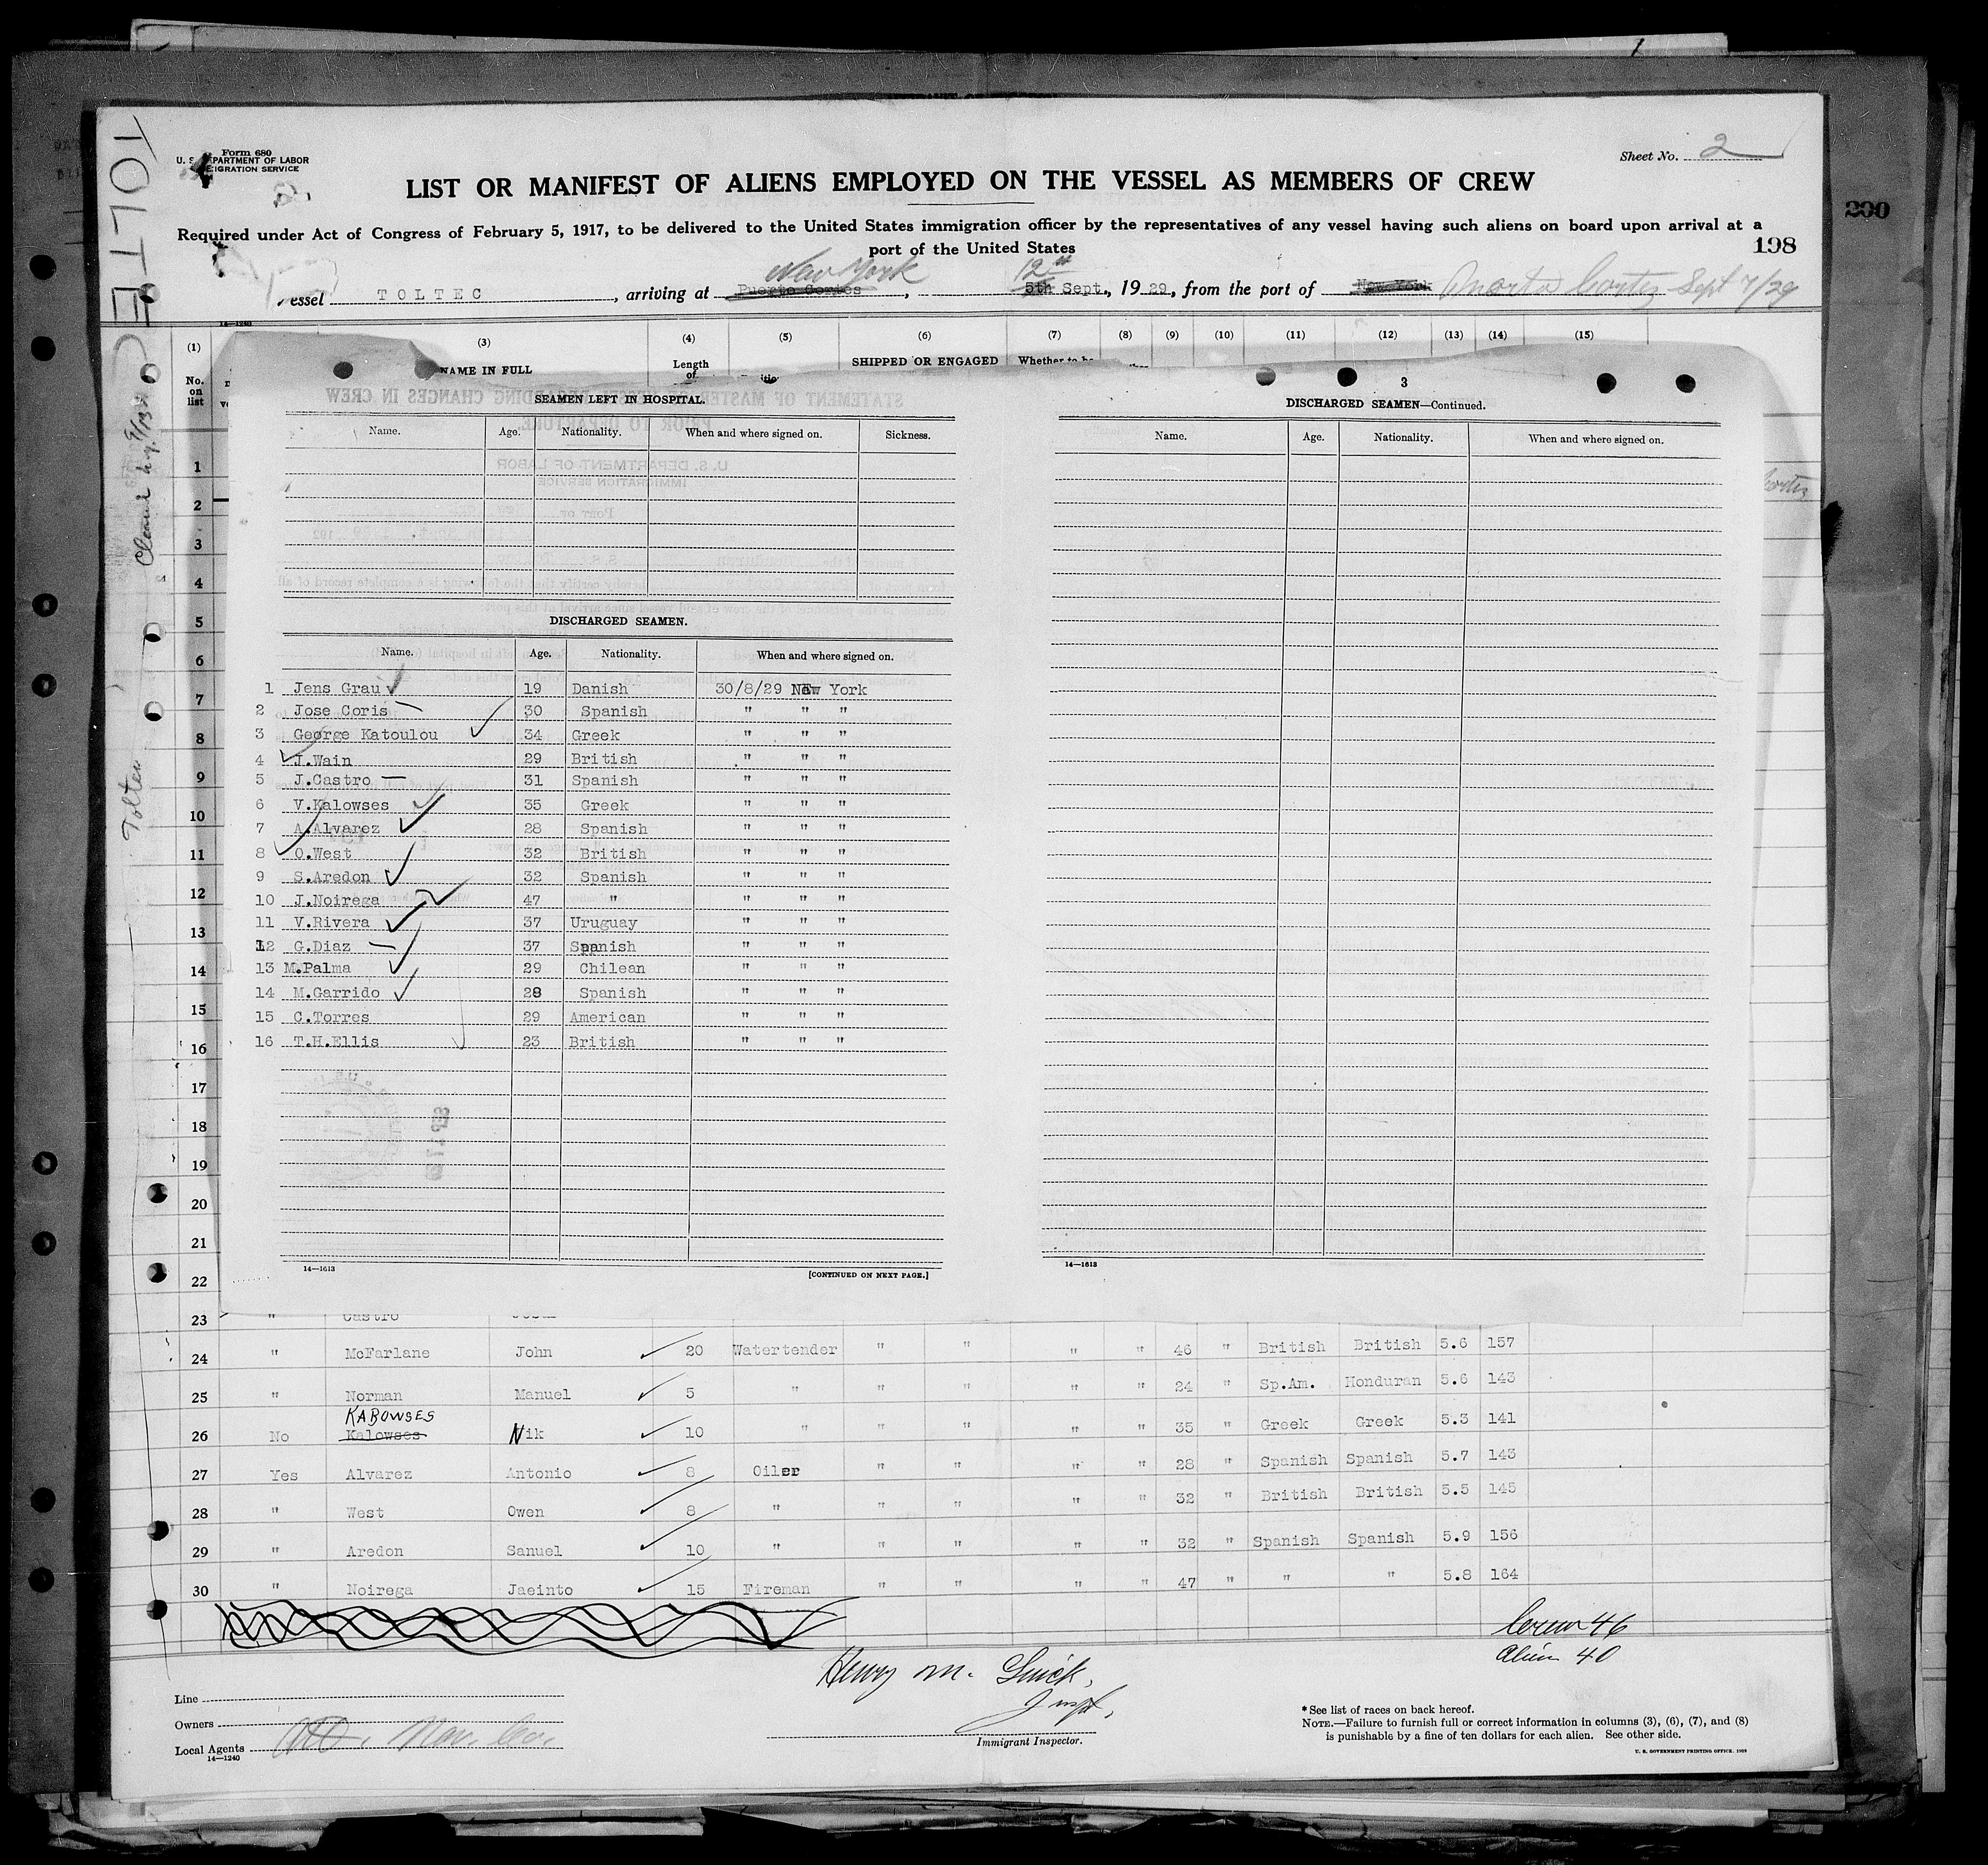 TOLTEC
Form 680
U. S. DEPARTMENT OF LABOR
IMMIGRATION SERVICE
Sheet No. 2
LIST OR MANIFEST OF ALIENS EMPLOYED ON THE VESSEL AS MEMBERS OF CREW
Required under Act of Congress of February 5, 1917, to be delivered to the United States immigration officer by the representatives of any vessel having such aliens on board upon arrival at a
port of the United States
198
200
New York 12th
essel TOLTEC, arriving at Puerto Cortes, 5th Sept., 1929, from the port of New York Puerto Cortez Sept 7/29
(1) (3) (4) (5) (6) (7) (8) (9) (10) (11) (12) (13) (14) (15)
No. on list NAME IN FULL Length of SHIPPED OR ENGAGED Whether to be
3
SEAMEN LEFT IN HOSPITAL.
Name. Age. Nationality. When and where signed on. Sickness.
DISCHARGED SEAMEN—Continued.
Name. Age. Nationality. When and where signed on.
Cortez
DISCHARGED SEAMEN.
Name. Age. Nationality. When and where signed on.
1 Jens Grau 19 Danish 30/8/29 New York
2 Jose Coris 30 Spanish " " "
3 George Katoulou 34 Greek " " "
4 J.Wain 29 British " " "
5 J.Castro 31 Spanish " " "
6 V.Kalowses 35 Greek " " "
7 A.Alvarez 28 Spanish " " "
8 O.West 32 British " " "
9 S.Aredon 32 Spanish " " "
10 J.Noirega 47 " " " "
11 V.Rivera 37 Uruguay " " "
12 G.Diaz 37 Spanish " " "
13 M.Palma 29 Chilean " " "
14 M.Garrido 28 Spanish " " "
15 C.Torres 29 American " " "
16 T.H.Ellis 23 British " " "
14—1613
[CONTINUED ON NEXT PAGE.]
14—1613
1
2
3
4
5
6
7
8
9
10
11
12
13
14
15
16
17
18
19
20
21
22
23 " Castro
24 " McFarlane John 20 Watertender " " " " 46 " British British 5.6 157
25 " Norman Manuel 5 " " " " " 24 " Sp.Am. Honduran 5.6 143
KABOWSES
26 No Kalowses Nik 10 " " " " " 35 " Greek Greek 5.3 141
27 Yes Alvarez Antonio 8 Oiler " " " " 28 " Spanish Spanish 5.7 143
28 " West Owen 8 " " " " " 32 " British British 5.5 145
29 " Aredon Sanuel 10 " " " " " 32 " Spanish Spanish 5.9 156
30 " Noirega Jaeinto 15 Fireman " " " " 47 " " " 5.8 164
Crew 46
Alien 40
Henry M. Guick,
Inspt.
Immigrant Inspector.
Line
Owners
Local Agents
14—1240
* See list of races on back hereof.
NOTE.—Failure to furnish full or correct information in columns (3), (6), (7), and (8)
is punishable by a fine of ten dollars for each alien. See other side.
U. S. GOVERNMENT PRINTING OFFICE. 1928